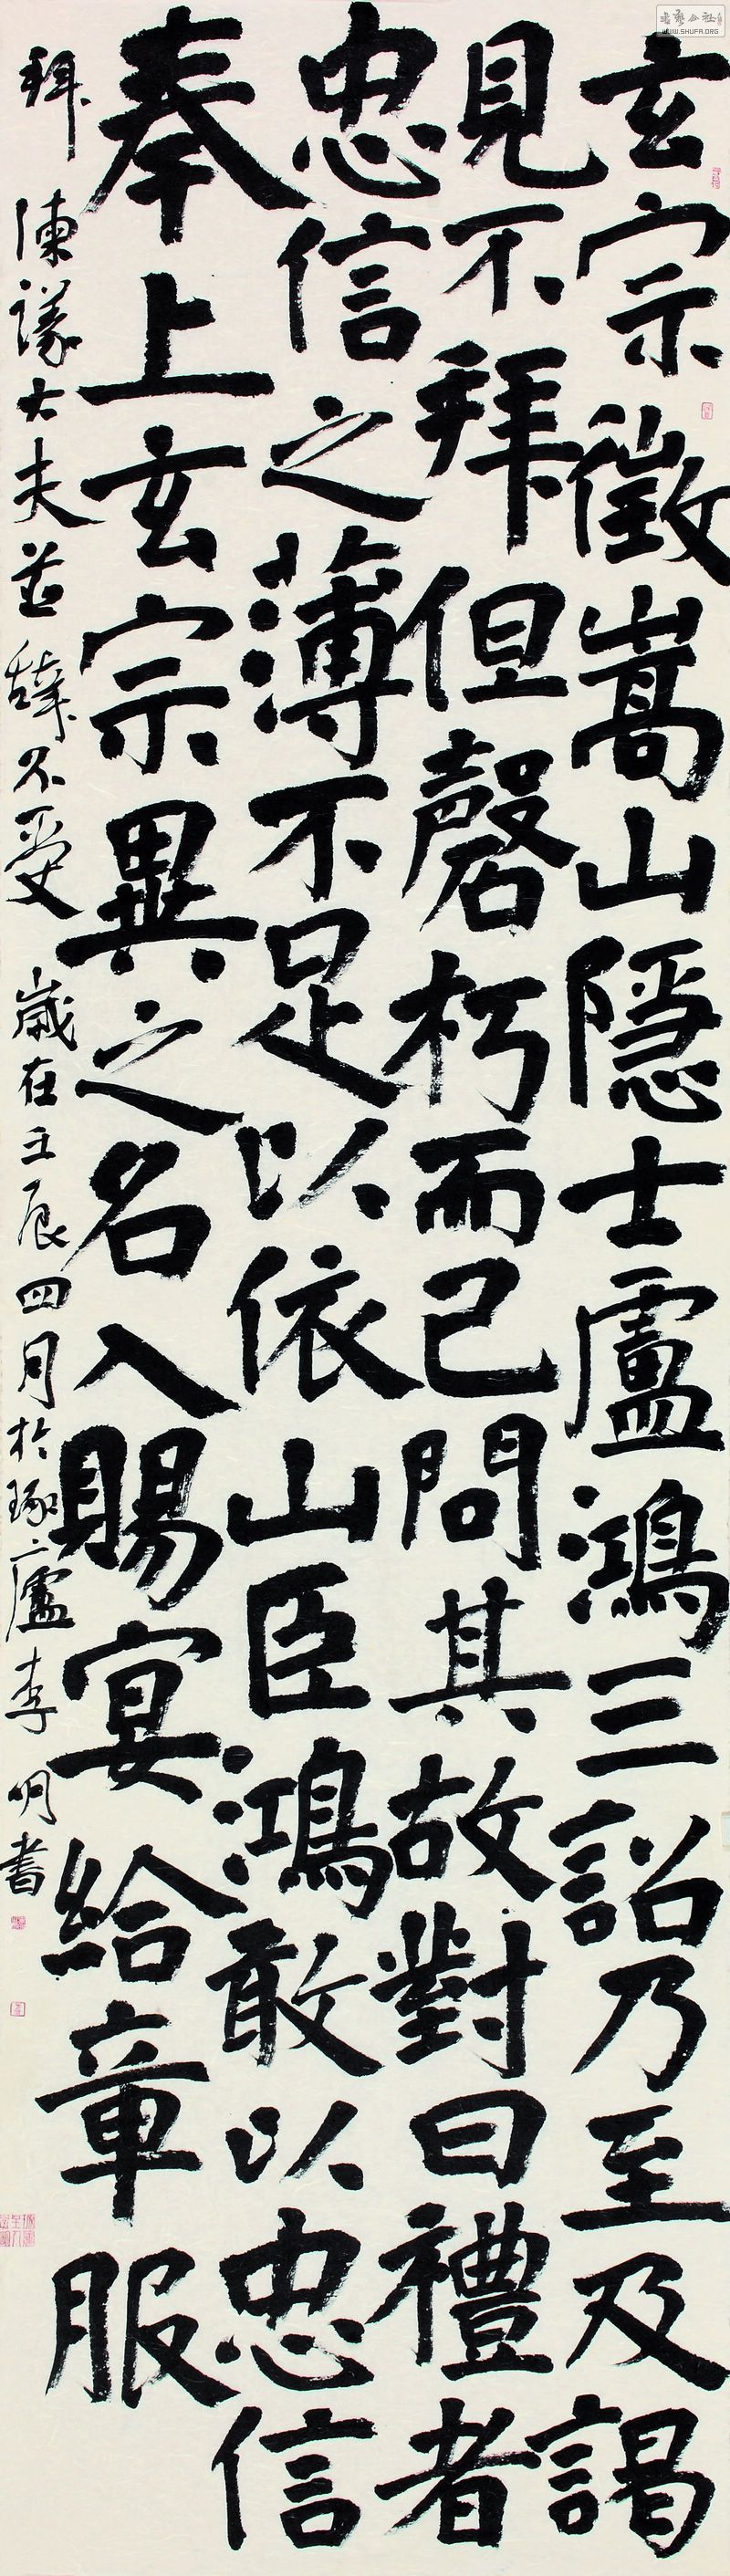 玄宗徵嵩山隱士盧鴻三詔乃至及謁
見不拜但磬朽而已問其故對曰禮者
忠信之薄不足以依山臣鴻敢以忠信
奉上玄宗異之名入賜宴給章服
拜 諫議大夫並辭不受 歲在壬辰四月於琢廬李明書
WWW.SHUFA.ORG